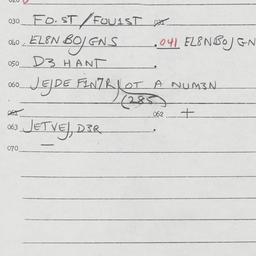 030 FO.ST / FOU1ST
040 EL8NBOJGNS .041 EL8NBOJGN
050 D3 HANT .
060 JEJDE F1N7R OT A NUM3N
(285
062 +
063 JETVEJ, D3R .
070 —